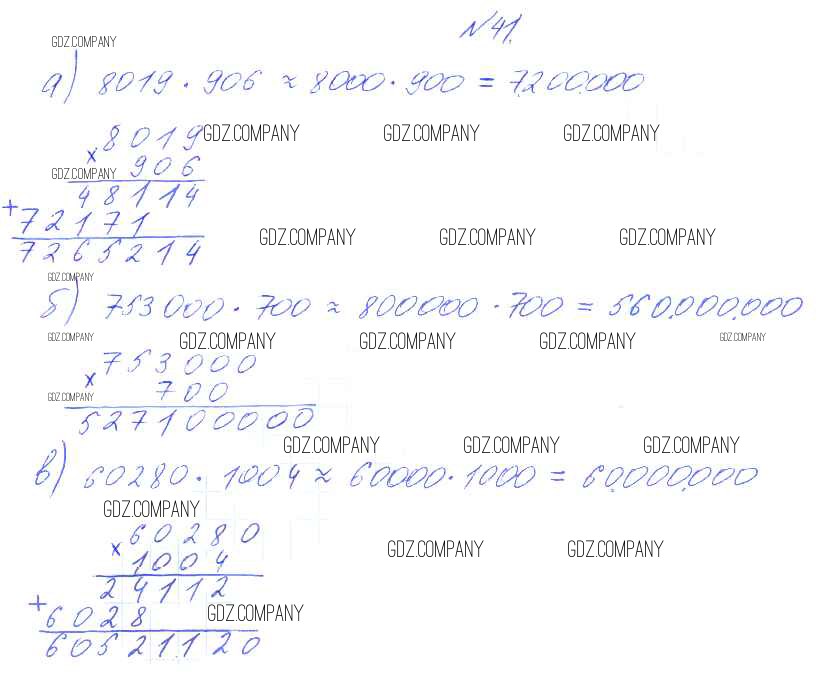 №41.
GDZ.COMPANY
а) 8019 · 906 ≈ 8000 · 900 = 7.200.000
8019 GDZ.COMPANY GDZ.COMPANY GDZ.COMPANY
×
GDZ.COMPANY 906
48114
+
72171
GDZ.COMPANY GDZ.COMPANY GDZ.COMPANY
7265214
GDZ.COMPANY
б) 753000 · 700 ≈ 800000 · 700 = 560.000.000
GDZ.COMPANY GDZ.COMPANY GDZ.COMPANY GDZ.COMPANY GDZ.COMPANY
753000
×
GDZ.COMPANY 700
527100000
GDZ.COMPANY GDZ.COMPANY GDZ.COMPANY
в) 60280 · 1004 ≈ 60000 · 1000 = 60.000.000
GDZ.COMPANY
60280
× GDZ.COMPANY GDZ.COMPANY
1004
24112
+
6028 GDZ.COMPANY
60521120